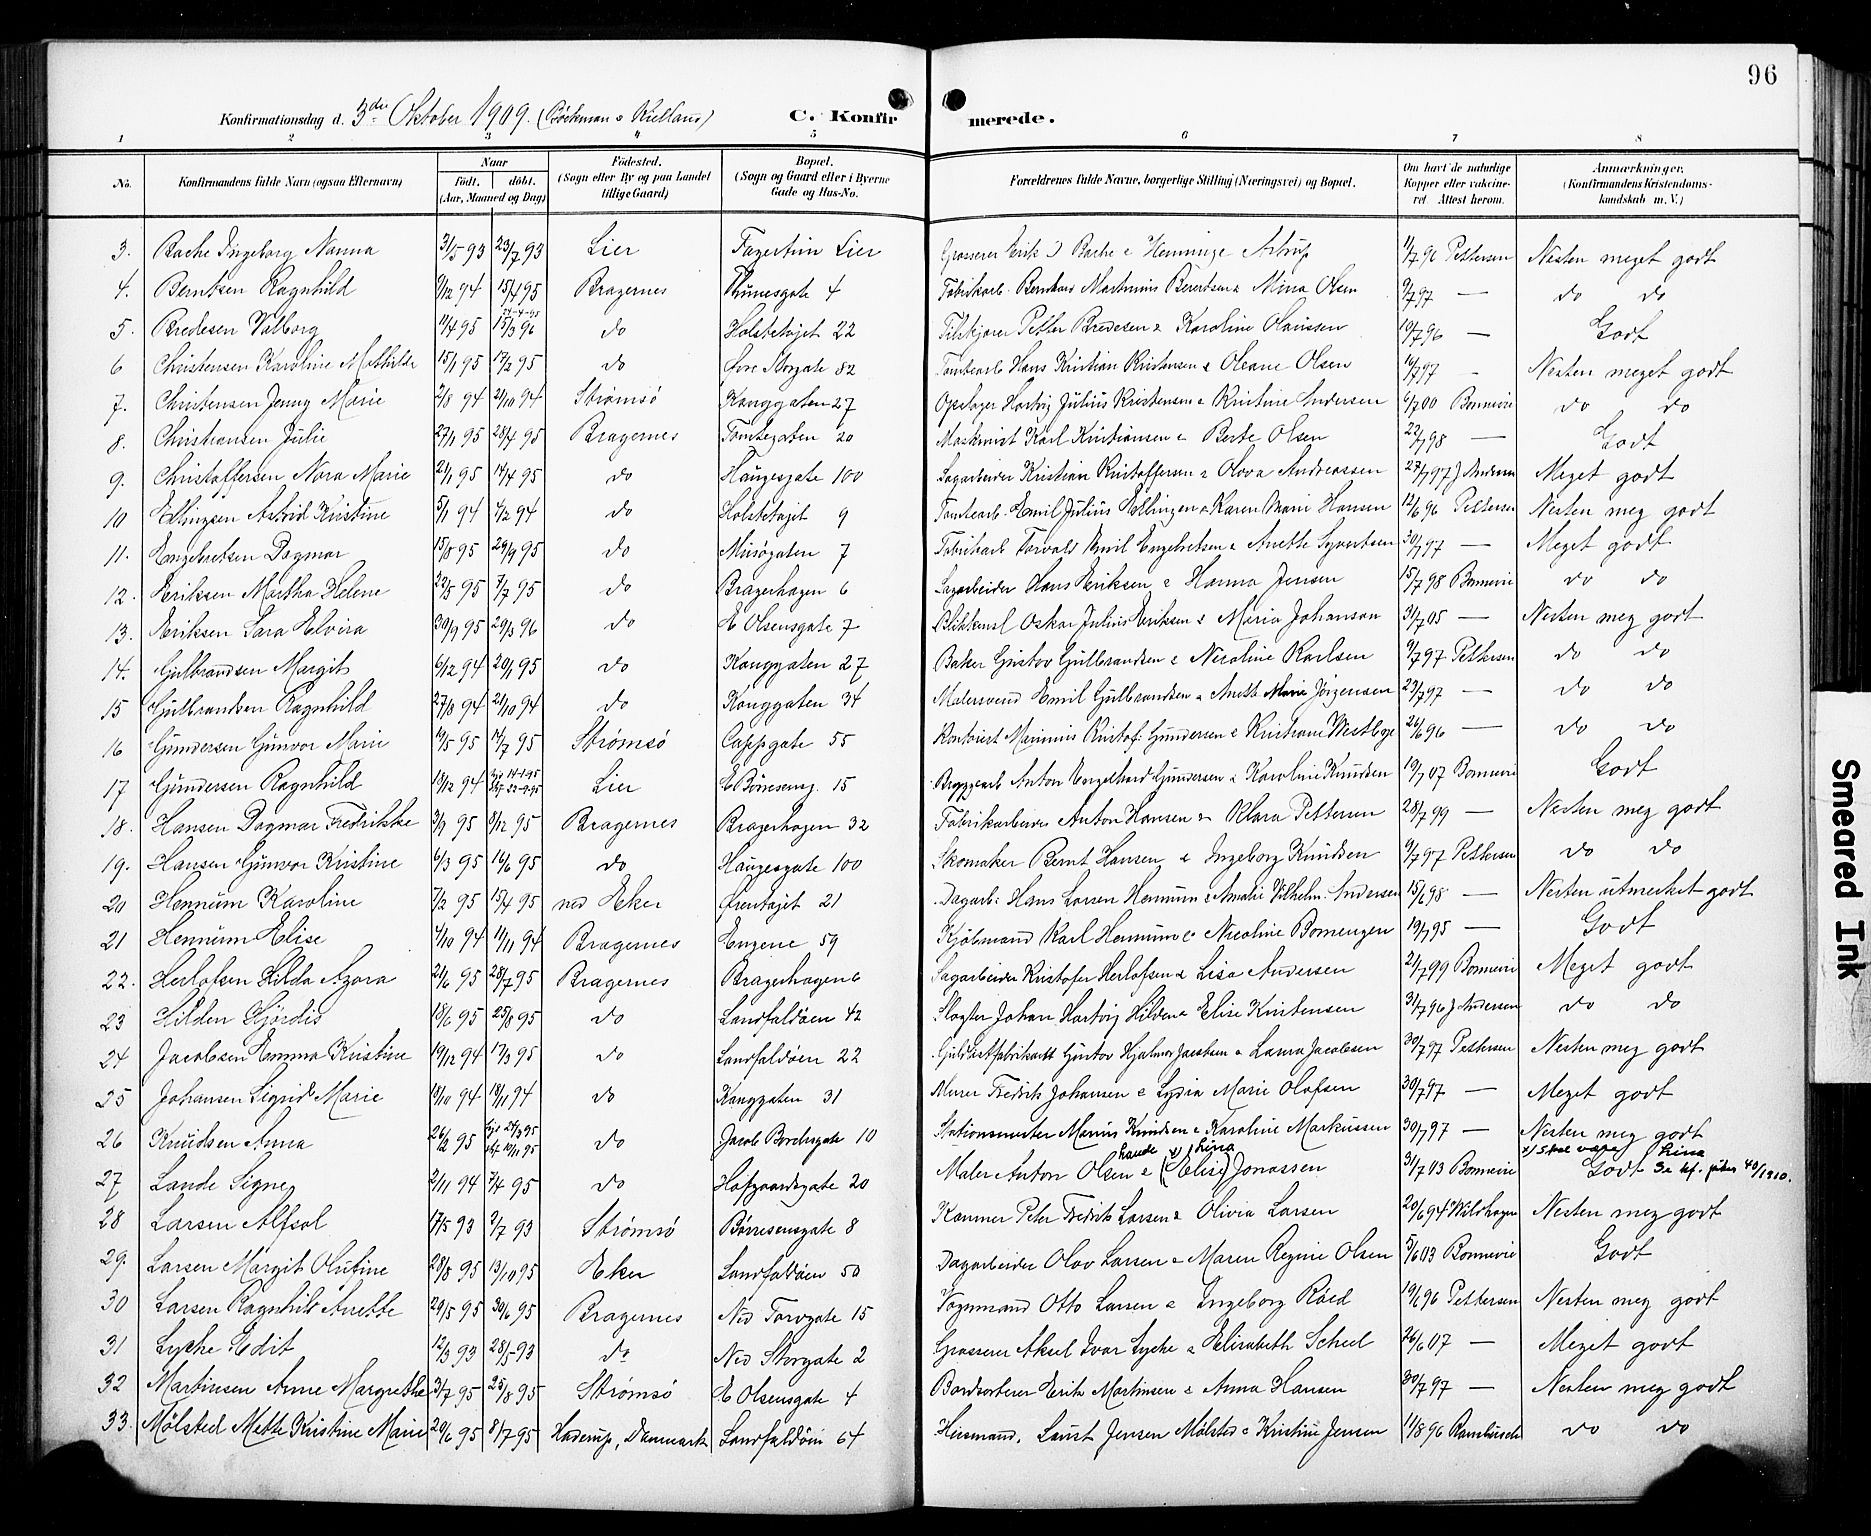 96
Konfirmationsdag d. 3die Oktober 1909. (Böckman & Kielland) C. Konfirmerede.
1 2 3 4 5 6 7 8
No. Konfirmandens fulde Navn (ogsaa Efternavn) Naar født. døbt. (Aar, Maaned og Dag) Födested. (Sogn eller By og paa Landet tillige Gaard) Bopæl. (Sogn og Gaard eller i Byerne Gade og Hus-No. Forældrenes fulde Navne, borgerlige Stilling (Næringsvei) og Bopæl. Om havt de naturlige Kopper eller vakcineret. Attest herom. Anmærkninger, (Konfirmandens Kristendomskundskab m. V.)
3. Bache Ingeborg Nanna 3/5 93 23/7 93 Lier Fagertun Lier Grosserer Erik Bache & Henninge Astrup 11/7 96 Pettersen Nesten meget godt
4. Berntsen Ragnhild 9/12 94 15/4 95 Bragernes Thunesgate 4 Fabrikarb. Bernhard Martinius Berentsen & Mina Olsen 9/7 97 — do do
5. Bredesen Valborg 11/4 95 15/3 96 do Holstetøjet 22 Petter Bredesen & Karoline Claussen 10/7 96 — Godt
6 Christensen Karoline Mathilde 15/1 95 17/2 95 do Øvre Storgate 82 Tomtearb Hans Kristian Kristensen & Oleane Olsen 14/7 97 - Nesten meget godt
7. Christensen Jenny Marie 2/8 94 21/10 94 Strømsø Konggaten 27 Opslager Hartvig Julius Kristensen & Kristine Andersen 6/7 00 Bonnevie do do
8. Christiansen Julie 27/1 95 28/4 95 Bragernes Tomtegaten 20 Maskinist Karl Kristiansen & Berte Olsen 22/7 98 — Godt
9. Christoffersen Nora Marie 21/1 95 14/4 95 do Haugesgate 100 Sagarbeider Kristian Kristoffersen & Olova Andreassen 27/7 97 J Andersen Meget godt
10 Ellingsen Astrid Kristine 5/1 94 4/12 94 do Holstetøjet 9 Tomtearb. Emil Julius Ellingsen & Karen Marie Hansen 12/6 96 Pettersen Nesten meg godt
11. Engebretsen Dagmar 15/8 95 29/9 95 do Musøgaten 7 Fabrikarb Torvald Emil Engebretsen & Anette Syvertsen 30/7 97 — Meget godt
12. Eriksen Martha Helene 22/5 95 7/7 95 do Bragerhagen 6 Sagarbeider Hans Eriksen & Hanna Jensen 15/7 98 Bonnevie do do
13. Eriksen Sara Elvira 30/9 95 29/3 96 do E Olsensgate 7 Oskar Julius Eriksen & Maria Johanson 31/7 05 — Nesten meg godt
14. Gulbrandsen Margit 6/12 94 20/1 95 do Konggaten 27 Baker Gustav Gulbrandsen & Nicoline Karlsen 9/7 97 Pettersen do do
15 Gulbrandsen Ragnhild 27/8 94 21/10 94 do Konggaten 34 Malersvend Emil Gulbrandsen & Anette Marie Jørgensen 23/7 97 — do do
16 Gundersen Gunvor Marie 19/5 95 14/7 95 Strømsø Cappgate 55 Kontorist Marinius Kristof. Gundersen & Kristiane Westbye 26/6 96 — do do
17 Gundersen Ragnhild 18/12 94 Lier E Børresensg. 15 Bryggearb Anton Engelhard Gundersen & Karoline Knudsen 19/7 07 Bonnevie Godt
18. Hansen Dagmar Fredrikke 3/9 95 8/12 95 Bragernes Bragerhagen 32 Fabrikarbeider Anton Hansen & Klara Pettersen 28/7 99 — Nesten meg godt
19. Hansen Gunvor Kristine 6/3 95 16/6 95 do Haugesgate 100 Skomaker Bernt Hansen & Ingeborg Knudsen 9/7 97 Pettersen do do
20 Hennum Karoline 7/2 95 15/4 95 ned Eker Ørentøjet 21 Dagarb. Hans Larsen Hennum & Amalie Vilhelm. Andersen 15/6 98 — Nesten utmerket godt
21 Hennum Elise 4/10 94 11/11 94 Bragernes Engene 59 Kjøbmand Karl Hennum & Nicoline Bomengen 19/7 95 — Godt
22. Herlofsen Hilda Agora 21/6 95 28/7 95 Bragernes Bragerhagen 6 Sagarbeider Kristofer Herlofsen & Lisa Andersen 21/7 99 Bonnevie Meget godt
23 Hilden Hjørdis 18/6 95 25/8 95 do Landfaldøen 42 Slagter Johan Hartvig Hilden & Elise Kristensen 31/7 96 J Andersen do do
24 Jacobsen Emma Kristine 19/12 94 17/3 95 do Landfaldøen 22 Gustav Hjalmar Jacobsen & Laura Jacobsen 30/7 97 Pettersen Nesten meg godt
25 Johansen Sigrid Marie 18/10 94 18/11 94 do Konggaten 31 Murer Fredrik Johansen & Lydia Marie Olafsen 30/7 97 — Meget godt
26 Knudsen Anna 26/2 95 do Jacob Borchsgate 10 Stationsmester Marius Knudsen & Karoline Markussen 30/7 97 — Nesten meg godt
27 Lande Signe 2/11 94 7/4 95 do Hofgaardsgate 20 Maler Anton Olsen Lande & x) Lina (Elise) Jonassen 31/7 03 Bonnevie Godt x) skal være Lina
28 Larsen Alfsol 17/5 93 2/7 93 Strømsø Børresensgate 8 Peter Fredrik Larsen & Olivia Larsen 20/6 94 Wildhagen Nesten meg godt
29. Larsen Margit Olufine 28/8 95 13/10 95 Eker Landfaldøen 50 Dagarbeider Olav Larsen & Maren Regine Olsen 5/6 03 Bonnevie Godt
30 Larsen Ragnhild Anette 29/5 95 30/6 95 Bragernes Ned Torvgate 15 Vognmand Otto Larsen & Ingeborg Røed 19/6 96 Pettersen Nesten meg godt
31 Lyche Edit 12/3 93 28/5 93 do Ned Storgate 2 Grosserer Aksel Ivar Lyche & Elisabeth Scheel 26/6 07 — Meget godt
32 Martinsen Anne Margrethe 3/7 95 25/8 95 Strømsø E Olsensgate 4 Bordsorterer Erik Martinsen & Anna Hansen 30/7 97 — Nesten meg godt
33. Mølsted Mette Kristine Marie 29/6 95 8/7 95 Haderup, Danmark Landfaldøen 64 Husmand. Laust Jensen Mølsted & Kristine Jensen 11/8 96 Rambusch do do
Smeared Ink